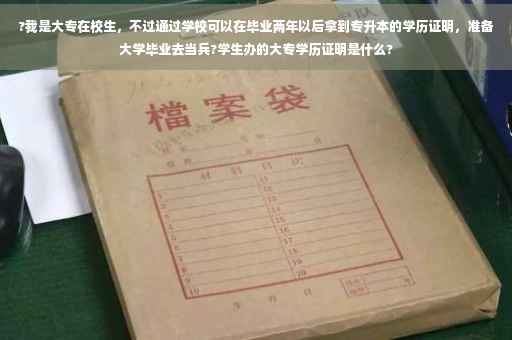 ?我是大专在校生，不过通过学校可以在毕业两年以后拿到专升本的学历证明，准备
大学毕业去当兵?学生办的大专学历证明是什么?
檔案袋
材料目次
1
2
3
4
5
6
7
8
9
10
11
12
13
14
15
16
17
18
19
20
年 月 日